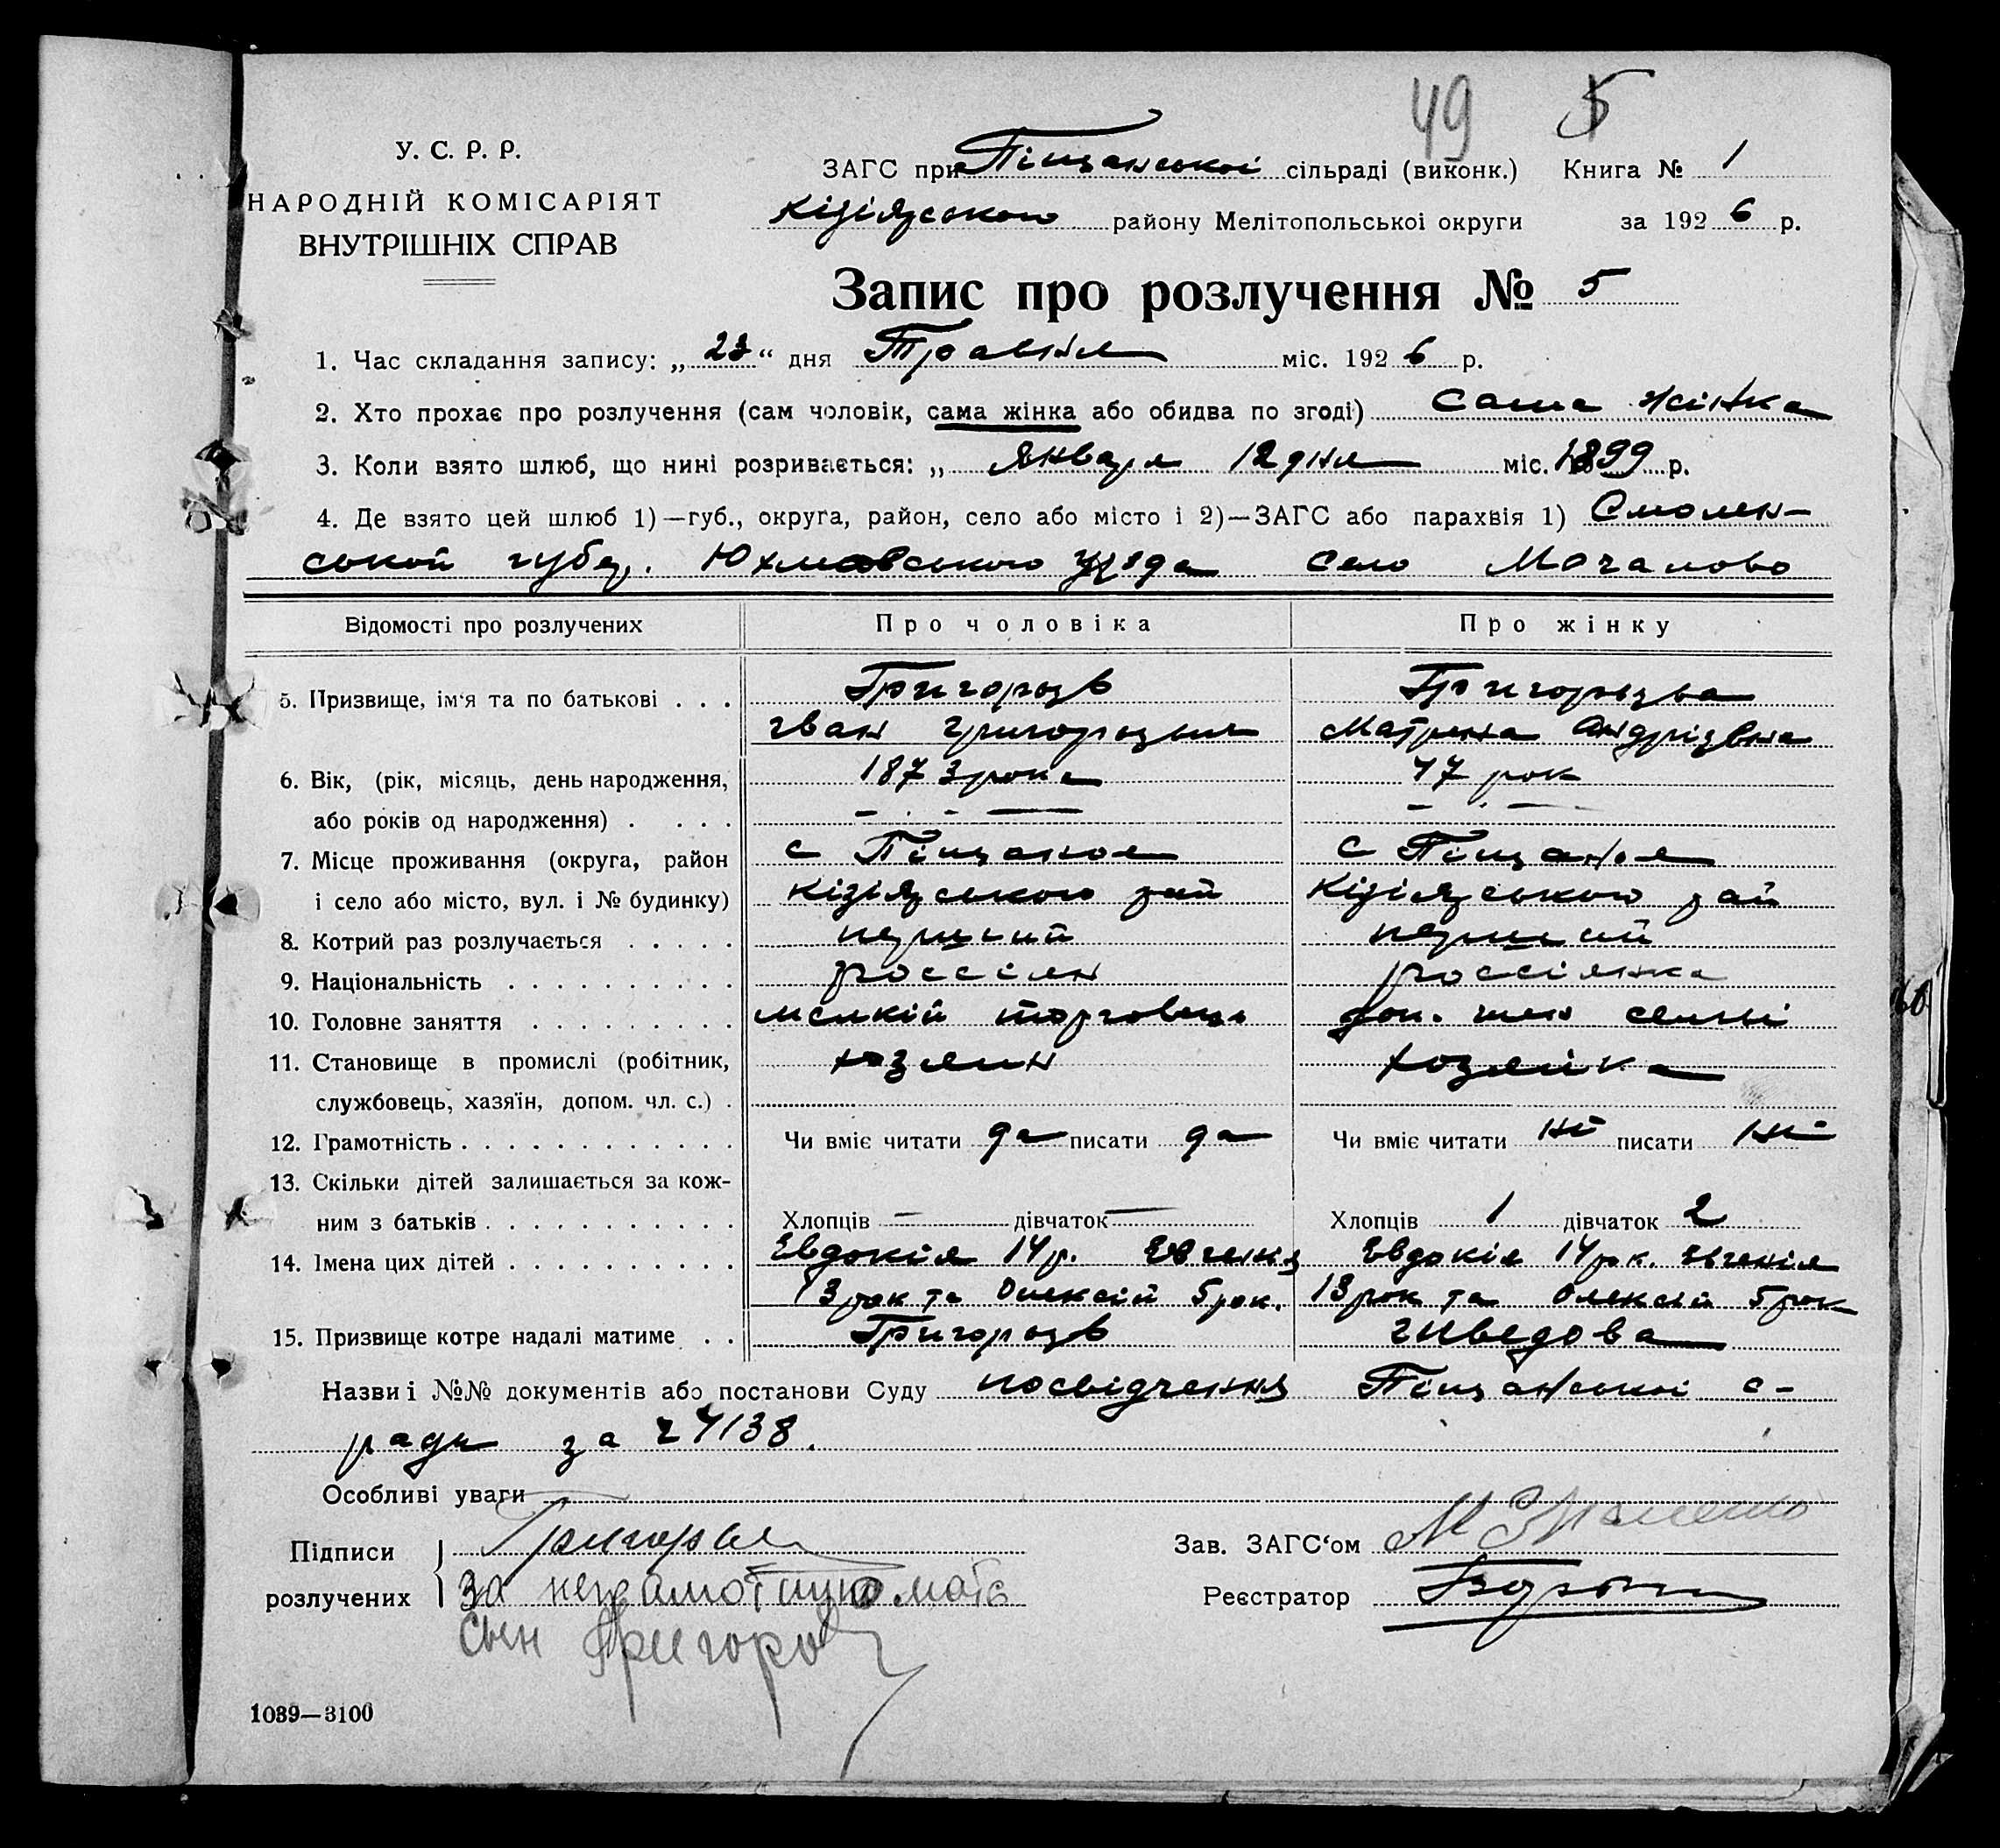 49 5
У. С. Р. Р.
НАРОДНІЙ КОМІСАРІЯТ
ВНУТРІШНІХ СПРАВ
ЗАГС при Піщанськоі сільраді (виконк.) Книга № 1
Кізіярського району Мелітопольськоі округи за 1926 р.
Запис про розлучення № 5
1. Час складання запису: „23“ дня Травня міс. 1926 р.
2. Хто прохає про розлучення (сам чоловік, сама жінка або обидва по згоді) сама жінка
3. Коли взято шлюб, що нині розривається: „ Января 12 дня міс. 1899 р.
4. Де взято цей шлюб 1)—губ., округа, район, село або місто і 2)—ЗАГС або парахвія 1) Смолен-
ськой губер. Юхмовського уезда село Мочалово
Відомості про розлучених Про чоловіка Про жінку
5. Призвище, ім‘я та по батькові . . . Григорьзв Григорьзва
Іван Григорьзвич Матрена Андрізвна
6. Вік, (рік, місяць, день народження, 1873 рока 47 рок
або років од народження) . . . . — . - — — . —
7. Місце проживання (округа, район с Піщаноя с Піщаноя
і село або місто, вул. і № будинку) Кізіярського рай Кізіярського рай
8. Котрий раз розлучається . . . . . перший перший
9. Національність . . . . . . . . . . россіян россіянка
10. Головне заняття . . . . . . . . . мєлкій торговець доп. член семьі
11. Становище в промислі (робітник, хозяин хозяйка
службовець, хазяїн, допом. чл. с.) .
12. Грамотність . . . . . . . . . . . . Чи вміє читати да писати да Чи вміє читати ні писати ні
13. Скільки дітей залишається за кож-
ним з батьків . . . . . . . . . . . Хлопців — дівчаток — Хлопців 1 дівчаток 2
14. Імена цих дітей . . . . . . . . . . Евдокія 14 р. Евгенія Евдокія 14 рок. Евгенія
13 рок та Олексій 5 рок. 13 рок та Олексій 5 рок
15. Призвище котре надалі матиме . . Григорьзв
Назви і №№ документів або постанови Суду посвідчення Піщанськоі с-
ради за ч 4138.
Особливі уваги
Підписи
розлучених
Григорьев
за неграмотную мать
сын Григоров
Зав. ЗАГС‘ом
Реєстратор
1039—3100